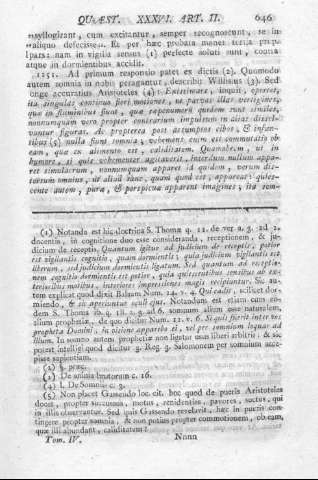 QUÆST. XXXVI. ART. II. 646
syllogizant, cum excitantur, semper recognoscunt, se in
aliquo defecisse. Et per hæc probata manet tertia
pars: nam in vigilia sensus (1) perfecte soluti sunt,
atque in dormientibus accidit.
1251. Ad primum responsio patet ex dictis (2). Quomodo
autem somnia in nobis peragantur, describit Willisius (3). Sed
longe accuratius Aristoteles (4): Existimare, inquit, oportet,
ita singulas continuo fieri motiones, ut parvas illas vertigines,
quæ in fluminibus fiunt, quæ sæpenumero quidem sunt similes,
nonnumquam vero propter contrarium impulsum in alias
vantur figuras. Ac propterea post assumptos cibos, & infan-
tibus (5) nulla fiunt somnia; vehemens enim est commutatio ob
eam, quæ ex alimento est, caliditatem. Quamobrem, ut in
humore, si quis vehementer agitaverit, interdum nullum appa-
ret simulacrum, nonnumquam apparet id quidem, verum dis-
tortum omnino, ut aliud tunc, quam quod est, appareat: quies-
cente autem, puræ, & perspicuæ apparent imagines; ita som-
(1) Notanda est hic doctrina S. Thomæ q. 12. de ver a. 3. ad 2.
docentis, in cognitione duo esse consideranda, receptionem, & ju-
dicium de receptis. Quantum igitur ad judicium de receptis, potior
est vigilantis cognitio, quam dormientis; quia judicium vigilantis est
liberum, sed judicium dormientis ligatum. Sed quantum ad receptio-
nem cognitio dormientis est potior, quia quiescentibus sensibus ab ex-
terioribus motibus, interiores impressiones magis recipiuntur. Sic au-
tem explicat quod dixit Balaam Num. 24. v. 4. Qui cadit, scilicet dor-
miendo, & sic aperiuntur oculi ejus. Notandum est etiam cum eo-
dem S. Thoma ib. q. 18. a. 3. ad 6. somnum alium esse naturalem,
alium prophetiæ, de quo dicitur Num. 12. v. 6. Si quis fuerit inter vos
propheta Domini, in visione apparebo ei, vel per somnium loquar ad
illum. In somno autem prophetiæ non ligatur usus liberi arbitrii; & sic
potest intelligi quod dicitur 3. Reg. 3. Salomonem per somnium acce-
pisse sapientiam.
(2) §. præc.
(3) De anima brutorum c. 16.
(4) l. De Somniis c. 3.
(5) Non placet Gassendo loc. cit. hoc quod de pueris Aristoteles
docet, propter succussus, motus, renidentias, pavores, suctus, qui
in illis observantur. Sed quis Gassendo revelavit, hæc in pueris con-
tingere propter somnia, & non potius propter commotionem, ob eam,
quæ illi abundant, caliditatem?
Tom. IV. Nnnn